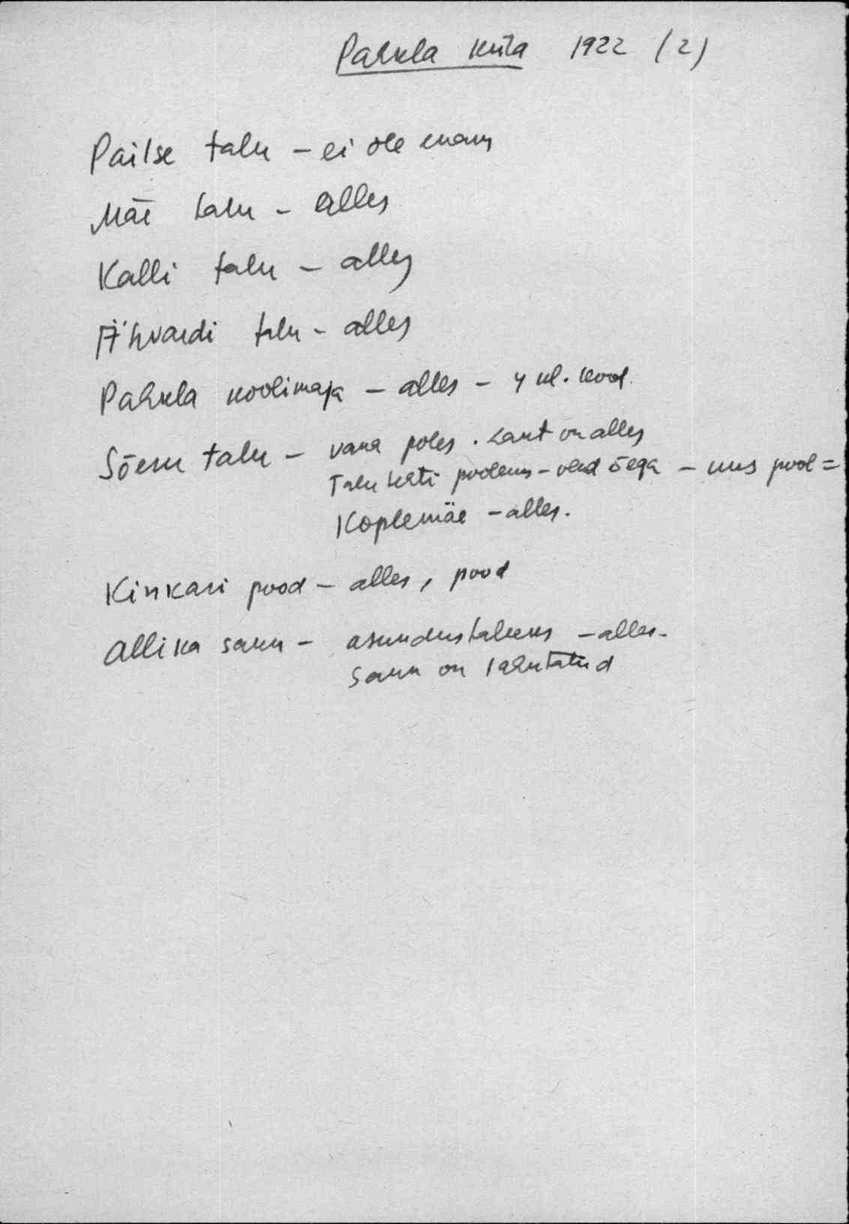 Pahkla küla 1922 (2)
Pailse talu - ei ole enam
Mäe talu - alles
Kalli talu - alles
Ähvardi talu - alles
Pahkla koolimaja - alles - 4 kl. kool.
Sõeru talu - vana poles. Laut on alles
Talu lasti pooleks - vend õega - uus pool =
Koplemäe - alles.
Kinkari pood - alles, pood
Allika saun - asundustaluks - alles.
Saun on lahutatud